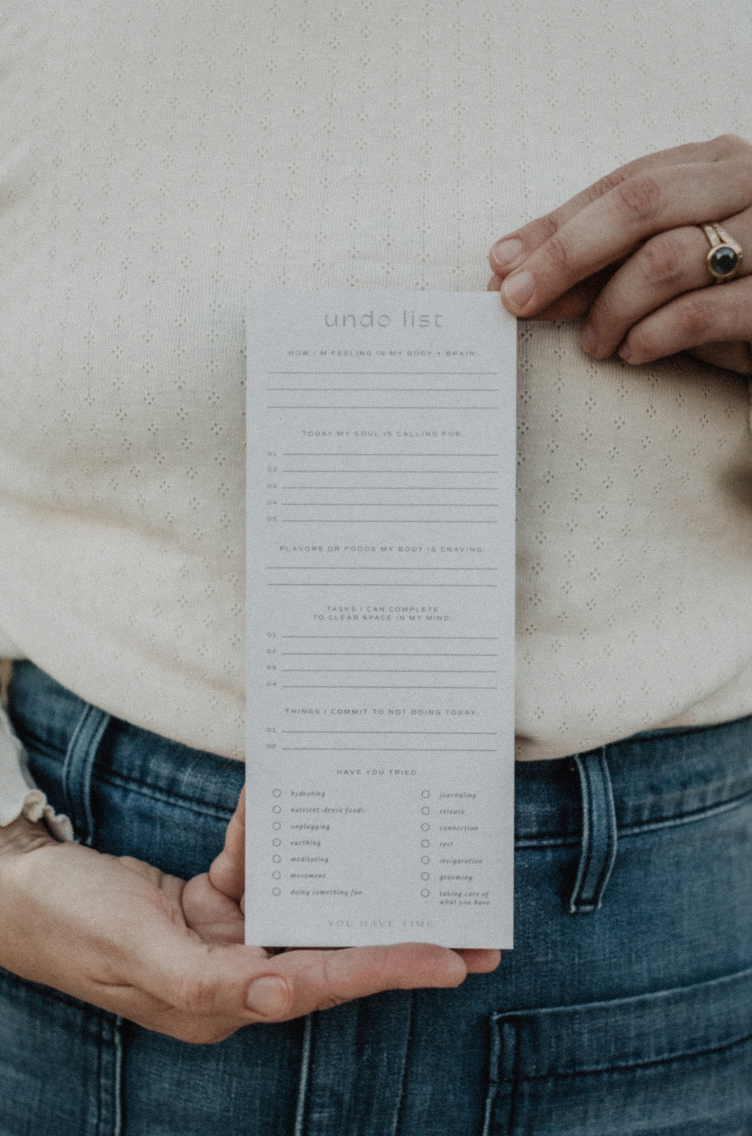 undo list
HOW I'M FEELING IN MY BODY + BRAIN:
TODAY MY SOUL IS CALLING FOR:
01
02
03
04
05
FLAVORS OR FOODS MY BODY IS CRAVING:
TASKS I CAN COMPLETE
TO CLEAR SPACE IN MY MIND:
01
02
03
04
THINGS I COMMIT TO NOT DOING TODAY:
01
02
HAVE YOU TRIED:
hydrating
nutrient-dense foods
unplugging
earthing
meditating
movement
doing something fun
journaling
release
connection
rest
invigoration
grooming
taking care of
what you have
YOU HAVE TIME